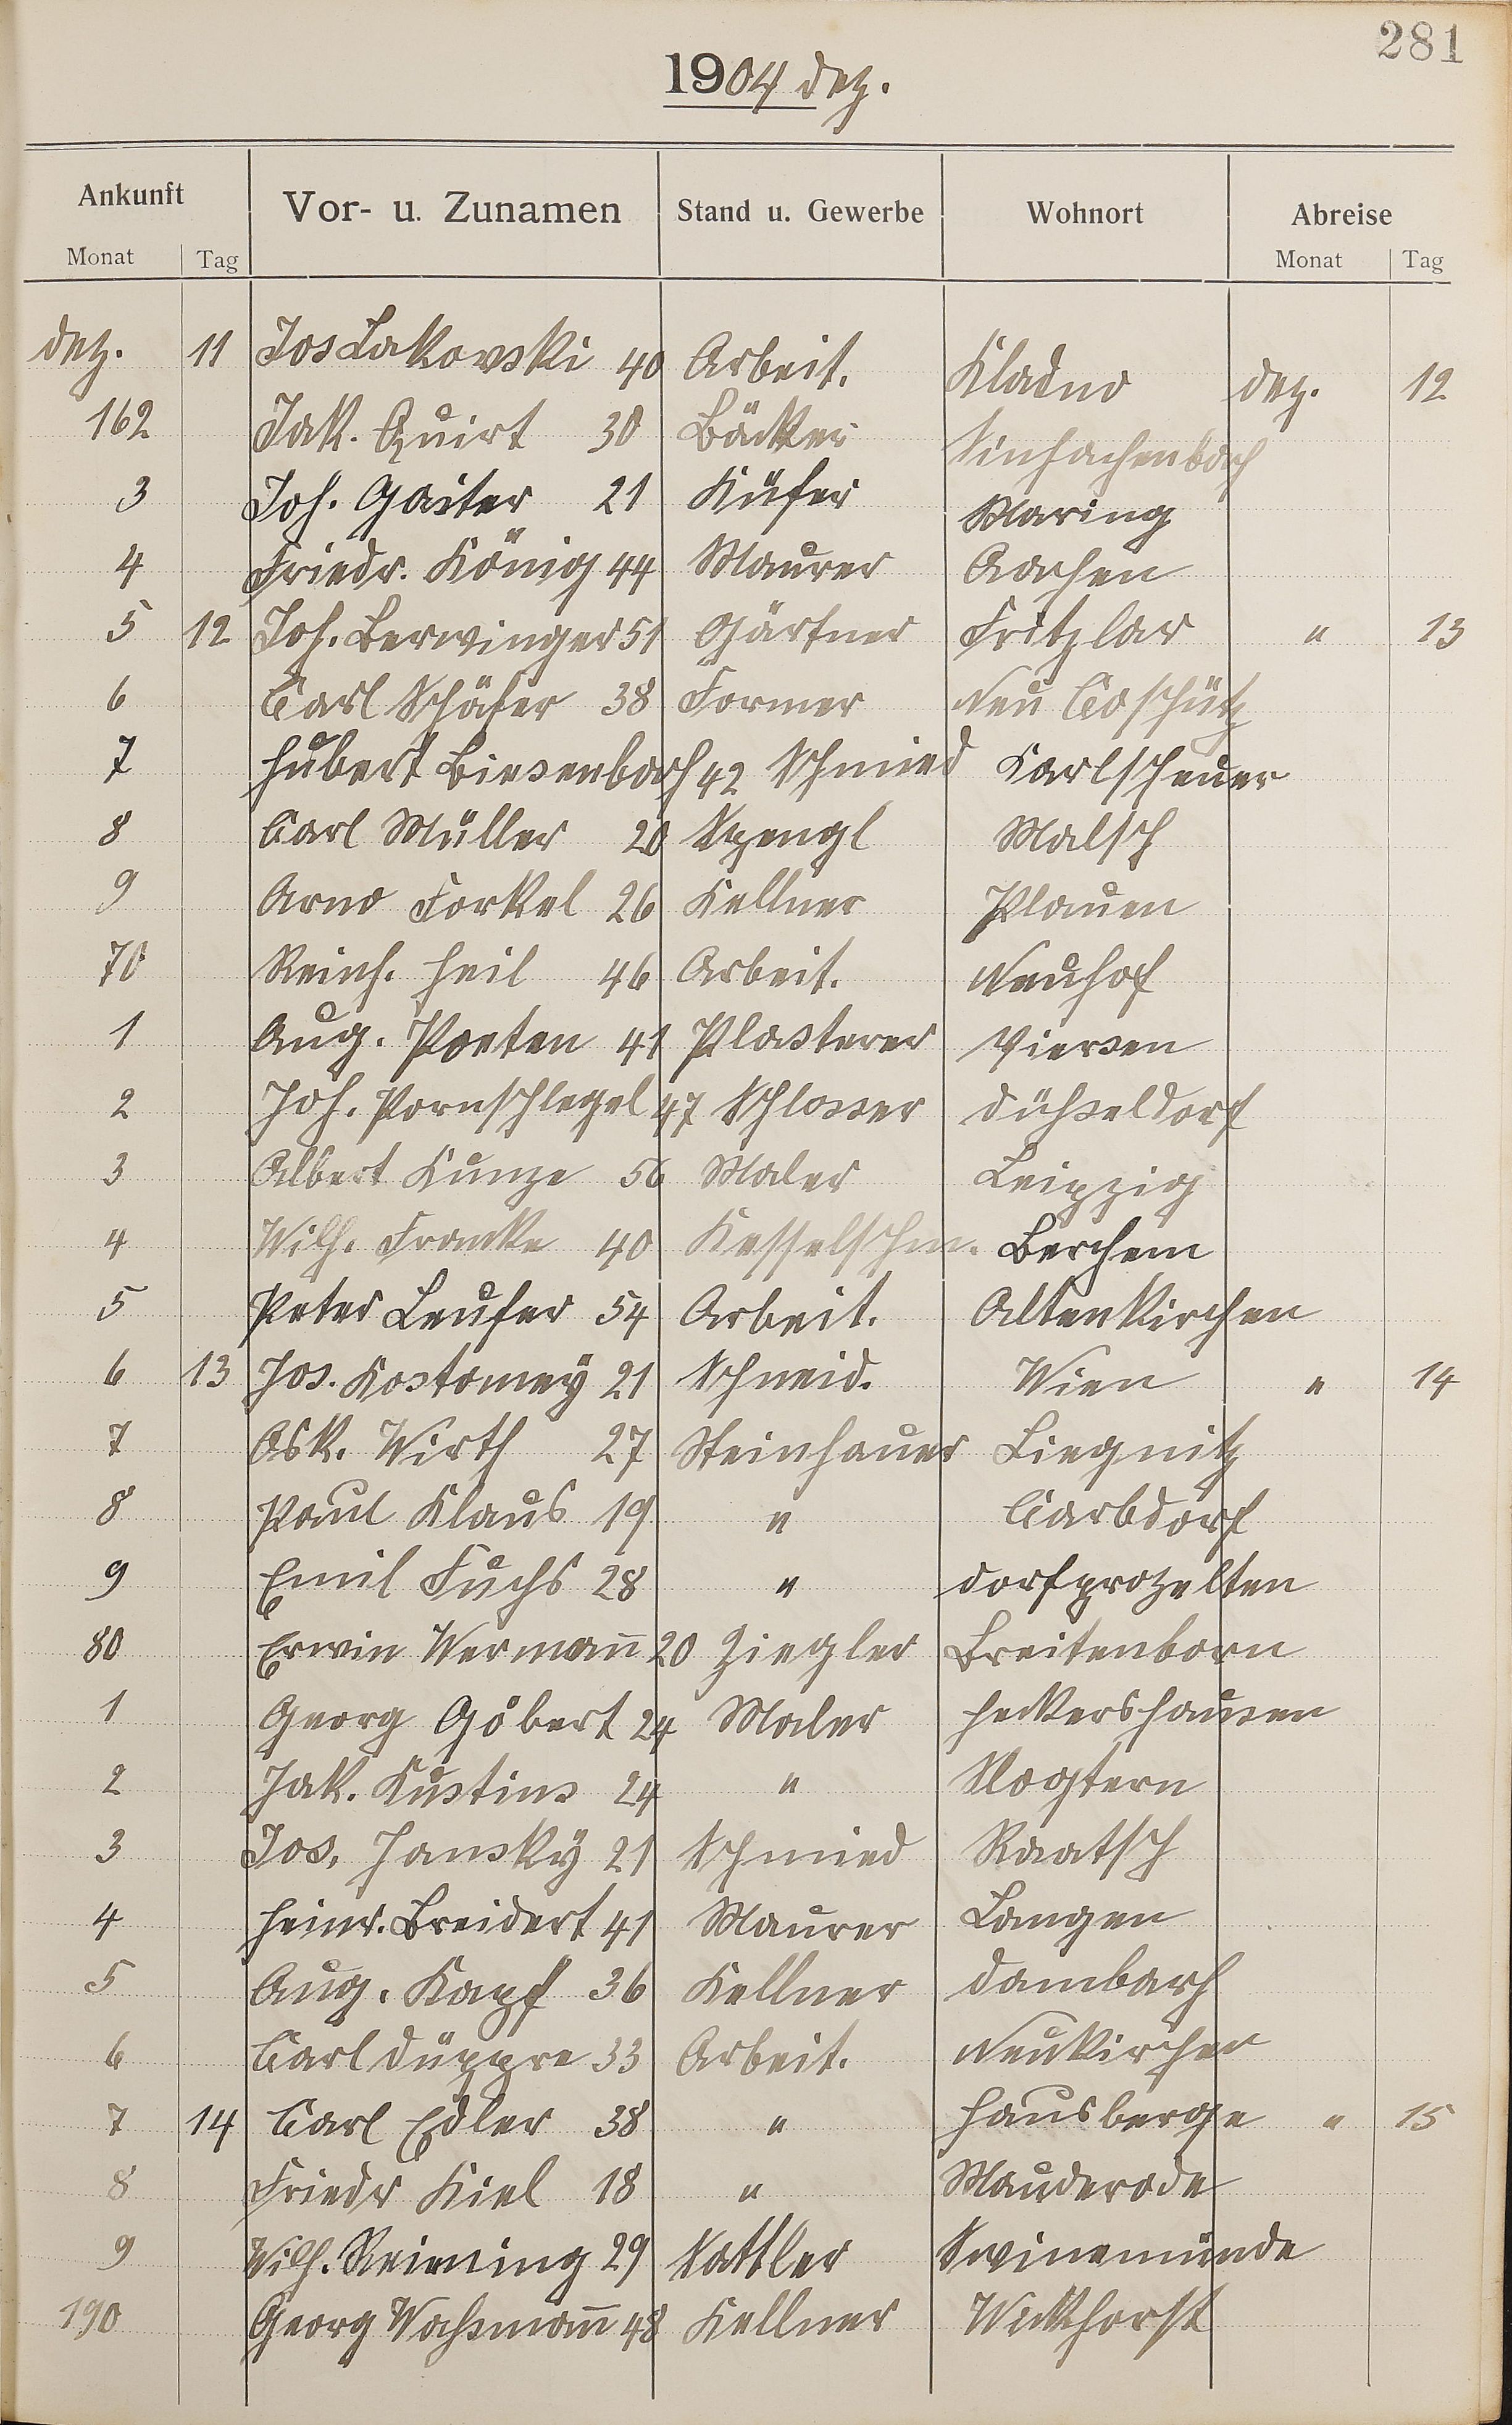 281
1904 Dez.
Ankunft Vor- u. Zunamen Stand u. Gewerbe Wohnort Abreise
Monat Tag Monat Tag
Dez. 11 Jos Lakovski 40 Arbeit. Kladno Dez. 12
162 Jak. Quirt 30 Bäcker Sinfachenbach
3 Joh. Gaiter 21 Küfer Maring
4 Friedr. König 44 Maurer Aachen
5 12 Joh. Berwinger 51 Gärtner Fritzlar " 13
6 Carl Schäfer 38 Former Neu Coschütz
7 Hubert Biesenbach 42 Schmied Karlscheuer
8 Carl Müller 20 Spengl Malsch
9 Arno Forkel 26 Kellner Plauen
70 Reinh. Heil 46 Arbeit. Neuhof
1 Aug. Poeten 41 Plasterer Viersen
2 Joh. Pornschlegel 47 Schlosser Dühseldorf
3 Albert Kunze 56 Maler Leipzig
4 Wilh. Francke 40 Kesselschm. Berchem
5 Peter Leufer 54 Arbeit. Altenkirchen
6 13 Jos. Kostomey 21 Schneid. Wien " 14
7 Osk. Wirth 27 Steinhauer Liegnitz
8 Paul Klaus 19 " Carbdorf
9 Emil Fuchs 28 " Dorfprozelten
80 Erwin Wermañ 20 Ziegler Breitenborn
1 Georg Göbert 24 Maler Heckershausen
2 Jak. Kustins 24 " Klogtern
3 Jos. Jansky 21 Schmied Raatsch
4 Heinr. Breidert 41 Maurer Langen
5 Aug. Kapf 36 Kellner Dambach
6 Carl Düppre 33 Arbeit. Neukirchen
7 14 Carl Edler 38 " Hausberge " 15
8 Friedr Kiel 18 " Mauderode
9 Wilh. Reiming 29 Sattler Swinemünde
190 Georg Wahsmañ 48 Kellner Weckhorst